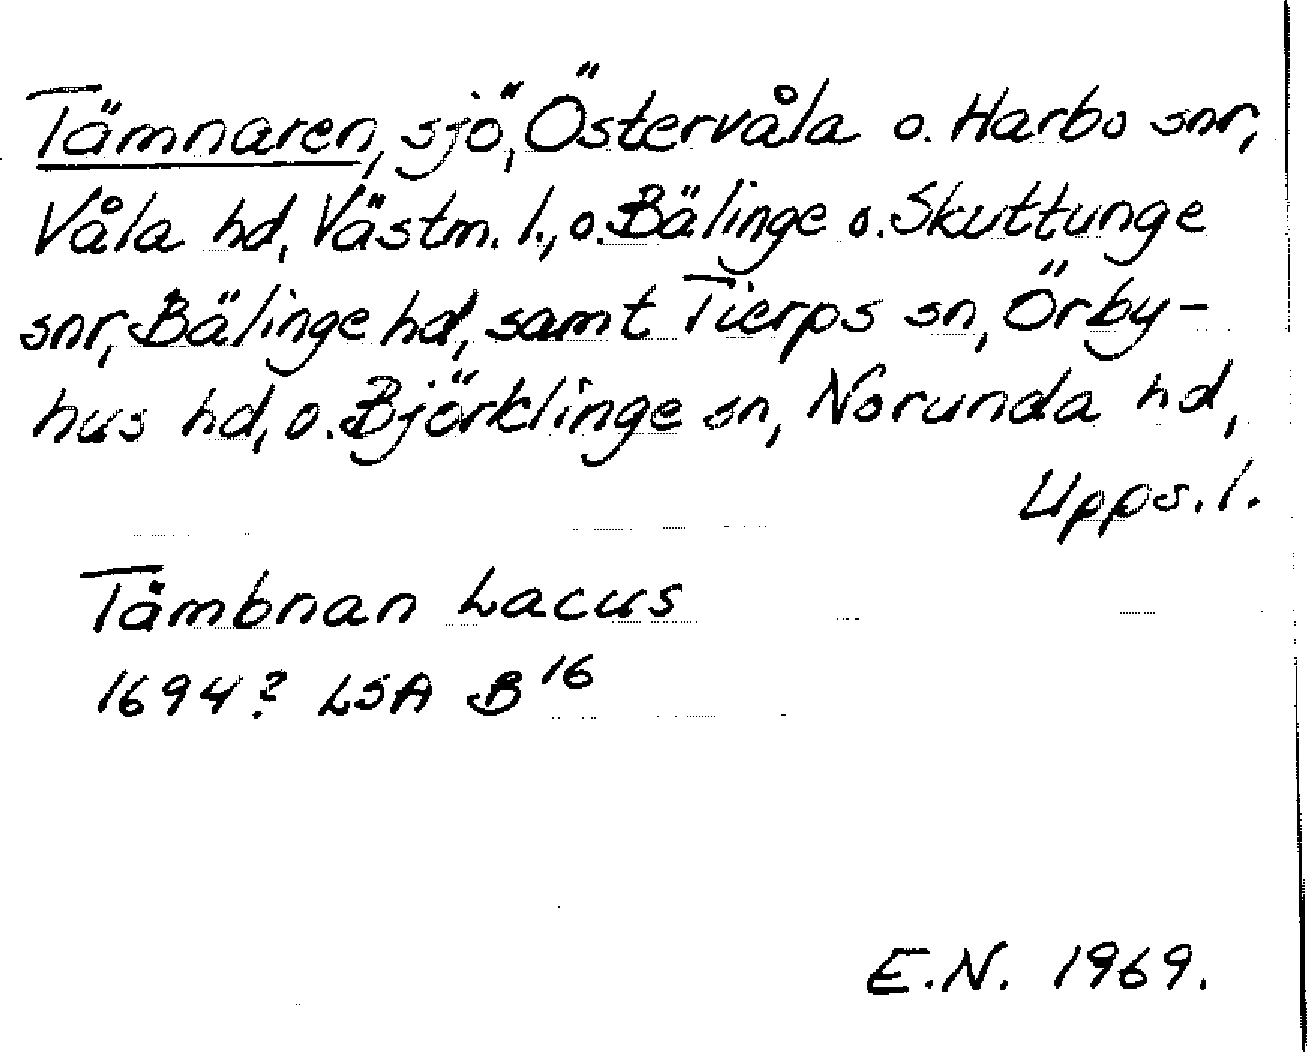 Tämnaren, sjö, Östervåla o. Harbo snr,
Våla hd, Västm. l., o. Bälinge o. Skuttunge
snr, Bälinge hd, samt Tierps sn, Örby-
hus hd, o. Björklinge sn, Norunda hd,
Upps. l.
Tämbnan Lacus
1694? LSA B16
E.N. 1969.